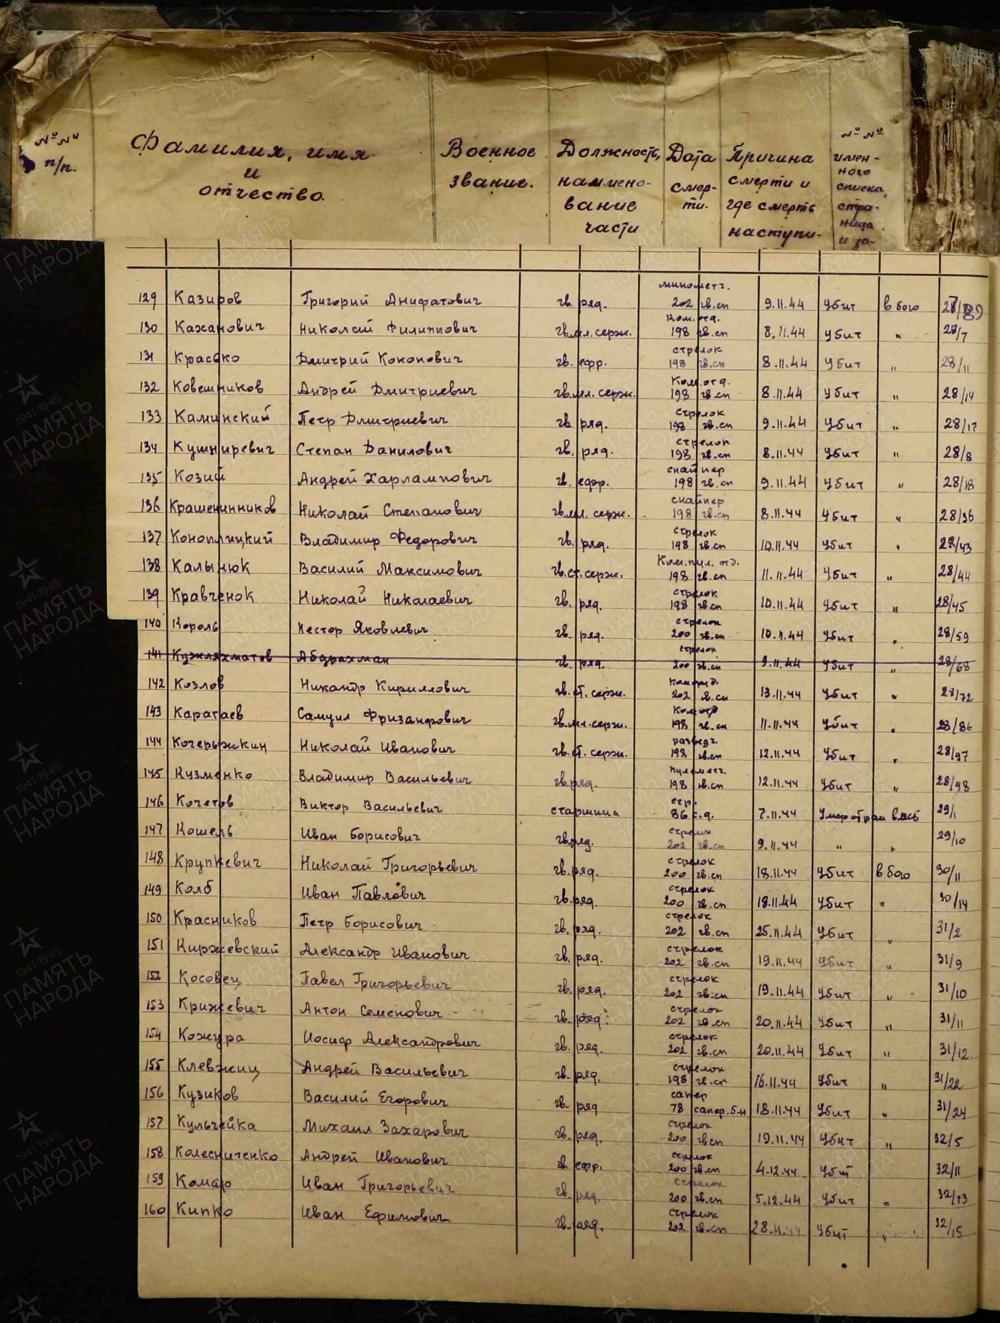 №№ п/п. Фамилия, имя и отчество. Военное звание. Должность, наимено- вание части Дата смер- ти. Причина смерти и где смерть наступи- №№ имен- ного списка, стра- ница и за-
129 Казиров Григорий Анифатович гв. ряд. минометч. 202 гв.сп 9.11.44 Убит в бою
130 Кажанович Николай Филиппович гв.мл.серж. Ком.отд. 198 гв.сп 8.11.44 Убит " 28/7
131 Красько Дмитрий Кононович гв. ефр. стрелок 198 гв.сп 8.11.44 Убит " 28/11
132 Ковешников Андрей Дмитриевич гв.мл.серж. Ком.отд. 198 гв.сп 8.11.44 Убит " 28/14
133 Каминский Петр Дмитриевич гв. ряд. стрелок 198 гв.сп 9.11.44 Убит " 28/17
134 Кушниревич Степан Данилович гв. ряд. стрелок 198 гв.сп 8.11.44 Убит " 28/8
135 Козий Андрей Харлампович гв. ефр. снайпер 198 гв.сп 9.11.44 Убит " 28/18
136 Крашенинников Николай Степанович гв.мл.серж. снайпер 198 гв.сп 8.11.44 Убит " 28/36
137 Коноплицкий Владимир Федорович гв. ряд. стрелок 198 гв.сп 10.11.44 Убит " 28/43
138 Калынюк Василий Максимович гв.ст.серж. Ком.пул.отд. 198 гв.сп 11.11.44 Убит " 28/44
139 Кравченок Николай Николаевич гв. ряд. стрелок 198 гв.сп 10.11.44 Убит " 28/45
140 Король Нестор Яковлевич гв. ряд. стрелок 200 гв.сп 10.11.44 Убит " 28/59
141 Кужляхматов Абдрахман гв. ряд. стрелок 200 гв.сп 9.11.44 Убит " 28/68
142 Козлов Никандр Кириллович гв.ст.серж. 202 гв.сп 13.11.44 Убит " 28/72
143 Каратаев Самуил Фризандрович гв.мл.серж. Ком.отд 198 гв.сп 11.11.44 Убит " 28/86
144 Кочерыжкин Николай Иванович гв.ст.серж. разведч. 198 гв.сп 12.11.44 Убит " 28/97
145 Кузменко Владимир Васильевич гв.ряд. пулеметч. 198 гв.сп 12.11.44 Убит " 28/98
146 Кочетов Виктор Васильевич старшина стр. 86 с.д. 7.11.44 Умер от ран 29/1
147 Кошель Иван Борисович гв.ряд. стрелок 202 гв.сп 9.11.44 " " 29/10
148 Крупкевич Николай Григорьевич гв.ряд. стрелок 200 гв.сп 18.11.44 Убит в бою 30/11
149 Колб Иван Павлович гв.ряд. стрелок 200 гв.сп 18.11.44 Убит " 30/14
150 Красников Петр Борисович гв. ряд. стрелок 202 гв.сп 25.11.44 Убит " 31/2
151 Киржевский Александр Иванович гв. ряд. стрелок 202 гв.сп 19.11.44 Убит " 31/9
152 Косовец Павел Григорьевич гв. ряд. стрелок 202 гв.сп 19.11.44 Убит " 31/10
153 Крижевич Антон Семенович гв. ряд. стрелок 202 гв.сп 20.11.44 Убит " 31/11
154 Кожура Иосиф Александрович гв. ряд. стрелок 202 гв.сп 20.11.44 Убит " 31/12
155 Клевжиц Андрей Васильевич гв. ряд. стрелок 198 гв.сп 16.11.44 Убит " 31/22
156 Кузиков Василий Егорович гв. ряд сапер 78 сапер.б-н 18.11.44 Убит " 31/24
157 Кульчейка Михаил Захарович гв. ряд. стрелок 200 гв.сп 19.11.44 Убит " 32/5
158 Колесниченко Андрей Иванович гв. ефр. стрелок 200 гв.сп 4.12.44 Убит 32/11
159 Комар Иван Григорьевич гв. ряд. стрелок 200 гв.сп 5.12.44 Убит " 32/13
160 Кипко Иван Ефимович гв. ряд. стрелок 202 гв.сп 28.11.44 Убит " 32/15
1941-1945 ПАМЯТЬ НАРОДА